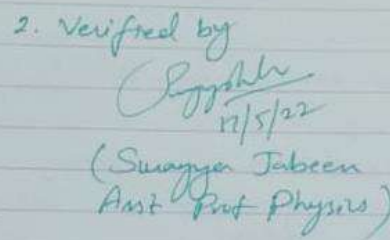 2. Verifred by
17/5/22
(Suragya Jabeen
Asst Prof Physics)